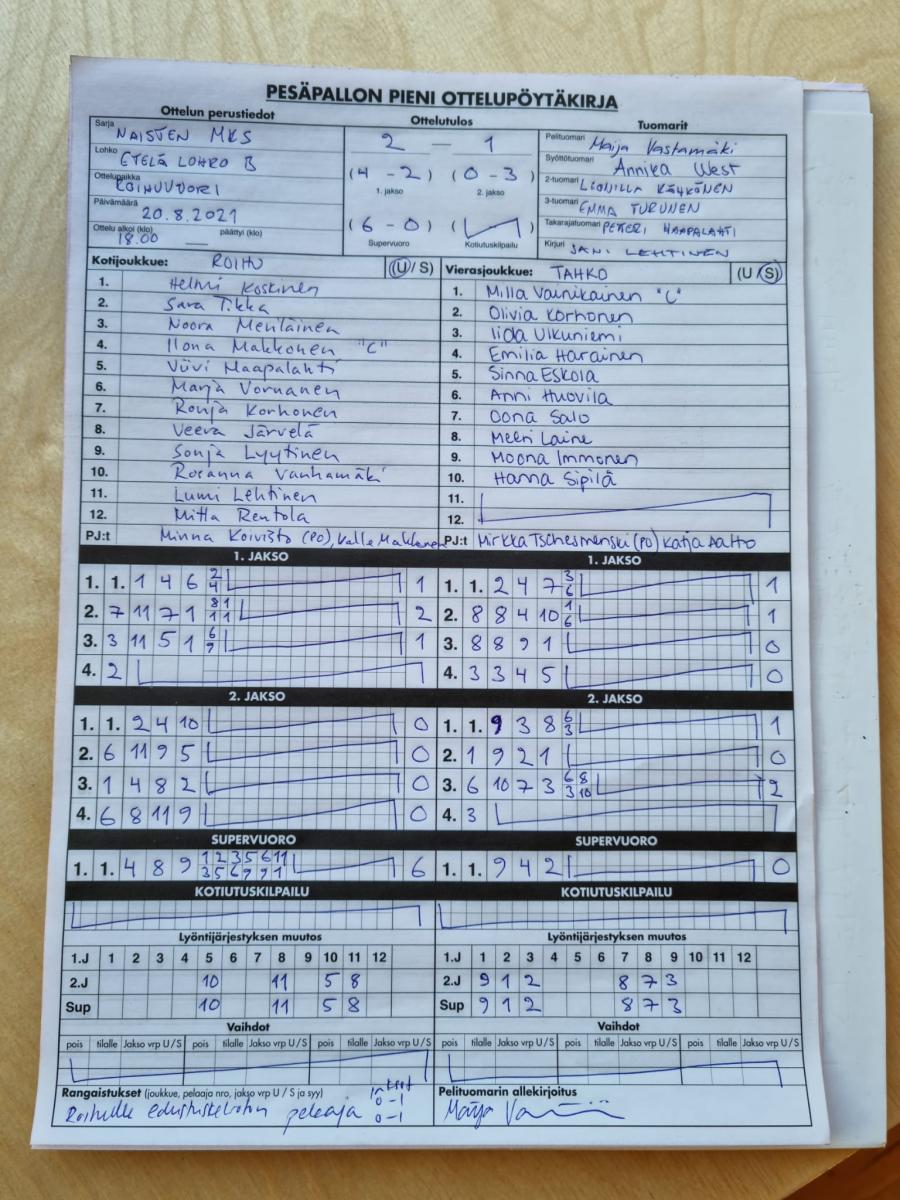 PESÄPALLON PIENI OTTELUPÖYTÄKIRJA
Ottelun perustiedot
Ottelutulos
Tuomarit
Sarja NAISTEN MKS
Lohko ETELÄ LOHKO B
Ottelupaikka ROIHUVUORI
Päivämäärä 20.8.2021
Ottelu alkoi (klo) 18.00 päättyi (klo)
2 — 1
(4 - 2) (0 - 3)
1. jakso 2. jakso
(6 - 0) ( )
Supervuoro Kotiutuskilpailu
Pelituomari Maija Vastamäki
Syöttötuomari Annika West
2-tuomari LEONILLA KÄHKÖNEN
3-tuomari EMMA TURUNEN
Takarajatuomari PETERI HAAPALAHTI
Kirjuri JANI LEHTINEN
Kotijoukkue: ROIHU (U/S)
1. Helmi Koskinen
2. Sara Tikka
3. Noora Meriläinen
4. Ilona Makkonen "C"
5. Vüvi Haapalahti
6. Marja Vornanen
7. Ronja Korhonen
8. Veera Järvelä
9. Sonja Lyytinen
10. Roosanna Vanhamäki
11. Lumi Lehtinen
12. Mitta Rentola
PJ:t Minna Koivisto (PO), Kalle Makkonen
Vierasjoukkue: TAHKO (U/S)
1. Milla Vainikainen "C"
2. Olivia Korhonen
3. Iida Ulkuniemi
4. Emilia Harainen
5. Sinna Eskola
6. Anni Huovila
7. Oona Salo
8. Meeri Laine
9. Moona Immonen
10. Hanna Sipilä
11.
12.
PJ:t Mirkka Tschesmenski (PO) Katja Aalto
1. JAKSO
1. 1. 1 4 6 2/4 1
2. 7 11 7 1 8/1 1/1 2
3. 3 11 5 1 6/9 1
4. 2
1. JAKSO
1. 1. 2 4 7 3/6 1
2. 8 8 4 10 1/6 1
3. 8 8 9 1 0
4. 3 3 4 5 0
2. JAKSO
1. 1. 2 4 10 0
2. 6 11 9 5 0
3. 1 4 8 2 0
4. 6 8 11 9 0
2. JAKSO
1. 1. 9 3 8 6/3 1
2. 1 9 2 1 0
3. 6 10 7 3 6/3 8/10 2
4. 3
SUPERVUORO
1. 1. 4 8 9 1/3 2/5 3/6 5/9 6/9 11/1 6
SUPERVUORO
1. 1. 9 4 2 0
KOTIUTUSKILPAILU
KOTIUTUSKILPAILU
Lyöntijärjestyksen muutos
1.J 1 2 3 4 5 6 7 8 9 10 11 12
2.J 10 11 5 8
Sup 10 11 5 8
Lyöntijärjestyksen muutos
1.J 1 2 3 4 5 6 7 8 9 10 11 12
2.J 9 1 2 8 7 3
Sup 9 1 2 8 7 3
Vaihdot
pois tilalle Jakso vrp U/S pois tilalle Jakso vrp U/S pois tilalle Jakso vrp U/S
Vaihdot
pois tilalle Jakso vrp U/S pois tilalle Jakso vrp U/S pois tilalle Jakso vrp U/S
Rangaistukset (joukkue, pelaaja nro, jakso vrp U / S ja syy)
pelaaja 0-1
0-1
Pelituomarin allekirjoitus
Maija